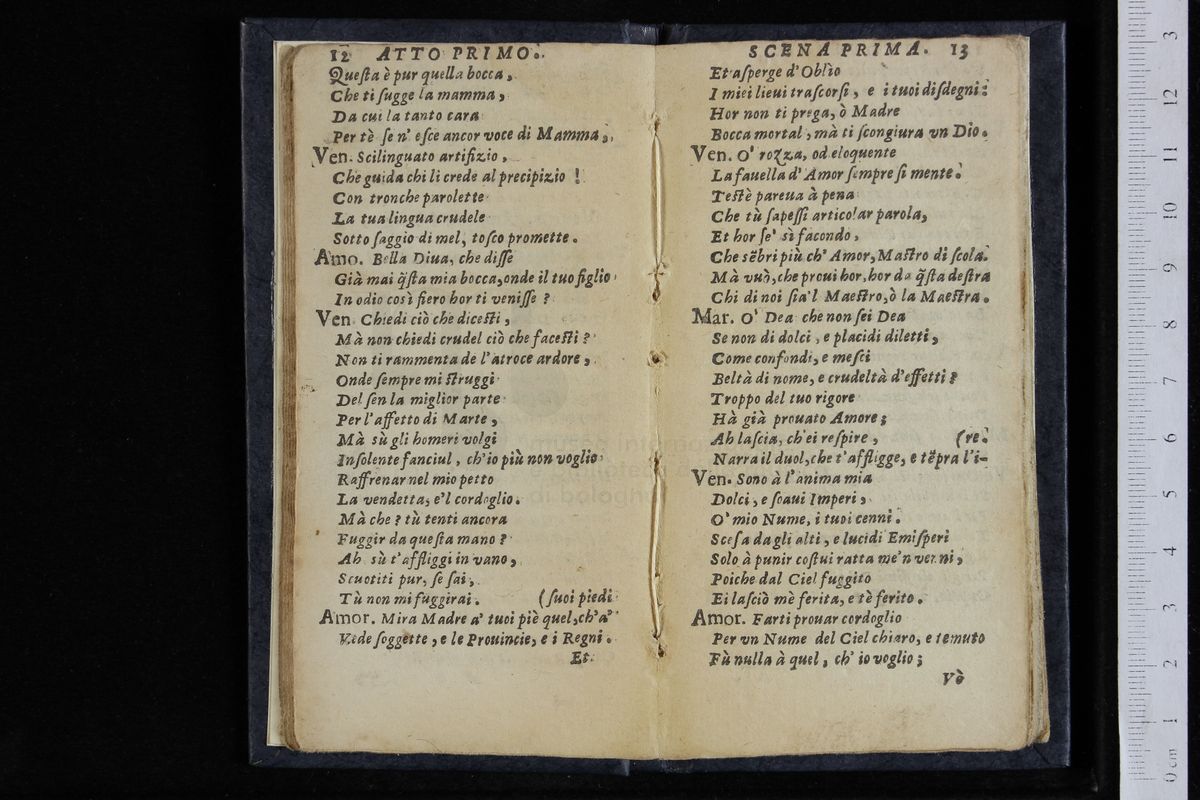 12 ATTO PRIMO.
Queſta è pur quella bocca,
Che ti ſugge la mamma,
Da cui la tanto cara
Per tè ſe n' eſce ancor voce di Mamma,
Ven. Scilinguato artifizio,
Che guida chi li crede al precipizio !
Con tronche parolette
La tua lingua crudele
Sotto ſaggio di mel, toſco promette.
Amo. Bella Diua, che diſſe
Già mai q̃ſta mia bocca, onde il tuo figlio
In odio così fiero hor ti veniſſe ?
Ven Chiedi ciò che diceſti,
Mà non chiedi crudel ciò che faceſti ?
Non ti rammenta de l'atroce ardore,
Onde ſempre mi ſtruggi
Del ſen la miglior parte
Per l'affetto di Marte,
Mà sù gli homeri volgi
Inſolente fanciul, ch'io più non voglio
Raffrenar nel mio petto
La vendetta, e'l cordoglio.
Mà che ? tù tenti ancora
Fuggir da queſta mano ?
Ah sù t'affliggi in vano,
Scuotiti pur, ſe ſai,
Tù non mi fuggirai. (ſuoi piedi
Amor. Mira Madre a' tuoi piè quel, ch'a'
Vede ſoggette, e le Prouincie, e i Regni.
Et
SCENA PRIMA. 13
Et aſperge d'Oblìo
I miei lieui traſcorſi, e i tuoi diſdegni:
Hor non ti prega, ò Madre
Bocca mortal, mà ti ſcongiura vn Dio.
Ven. O' rozza, od eloquente
La fauella d'Amor ſempre ſi mente.
Teſtè pareua à pena
Che tù ſapeſſi articolar parola,
Et hor ſe' sì facondo,
Che sẽbri più ch' Amor, Maſtro di ſcola.
Mà vuò, che proui hor, hor da q̃ſta deſtra
Chi di noi ſia'l Maeſtro, ò la Maeſtra.
Mar. O' Dea che non ſei Dea
Se non di dolci, e placidi diletti,
Come confondi, e meſci
Beltà di nome, e crudeltà d'effetti ?
Troppo del tuo rigore
Hà già prouato Amore;
Ah laſcia, ch'ei reſpire, (re.
Narra il duol, che t'affligge, e tẽpra l'i-
Ven. Sono à l'anima mia
Dolci, e ſoaui Imperi,
O' mio Nume, i tuoi cenni.
Sceſa da gli alti, e lucidi Emiſperi
Solo à punir coſtui ratta me'n venni,
Poiche dal Ciel fuggito
Ei laſciò mè ferita, e tè ferito.
Amor. Farti prouar cordoglio
Per vn Nume del Ciel chiaro, e temuto
Fù nulla à quel, ch' io voglio;
Vò